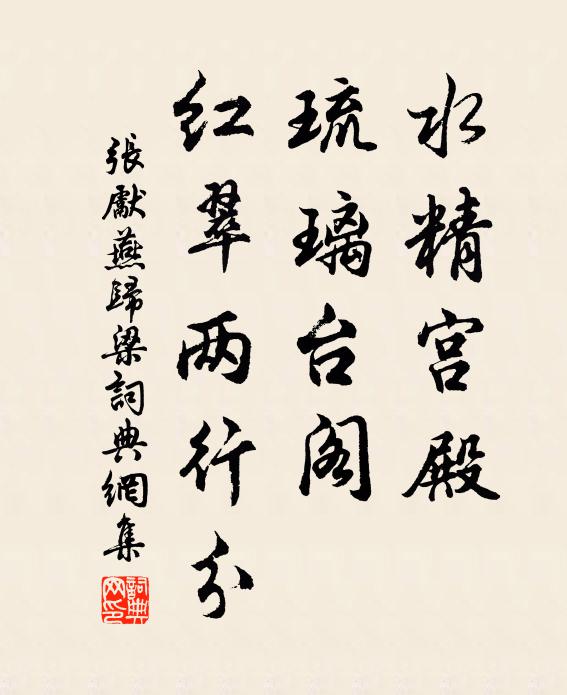 水精宫殿
琉璃台阁
红翠两行分
張獻燕歸梁詞典網集
詞典網印